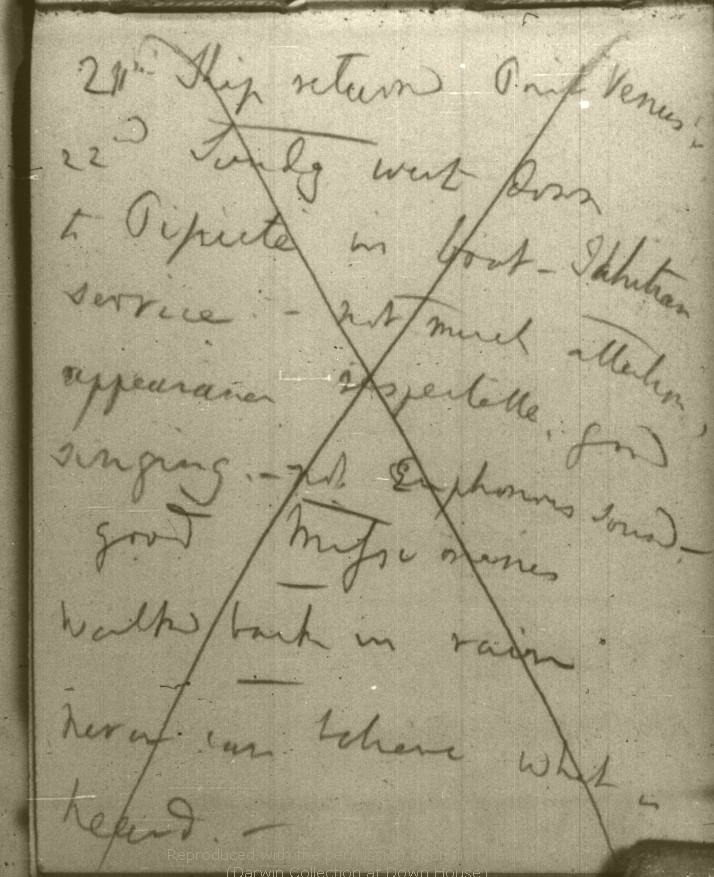 21st Ship return Point Venus:
22nd Sunday went down
to Papiete in boat — Tahitian
service. — not much attention,
appearance respectable. good
singing. — not Euphonious sound —
good Missionaries
Walked back in rain
never can believe what is
heard. —
Reproduced with the permission
(Darwin Collection at Down House)